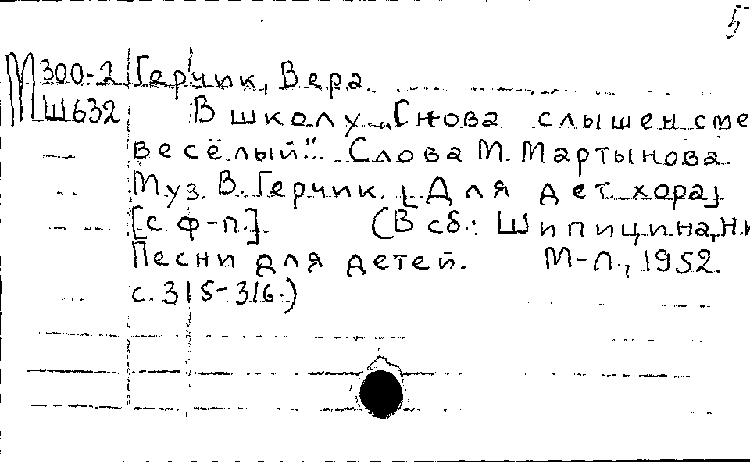 5
М 300-2 Герчик, Вера
Ш632 В школу „Снова слышен сме
весёлый". Слова М. Мартынова
Муз. В. Герчик. [Для дет. хора]
[с ф-п.]. (В сб.: Шипицина, Н.И
Песни для детей. М-Л., 1952.
с. 315-316.)